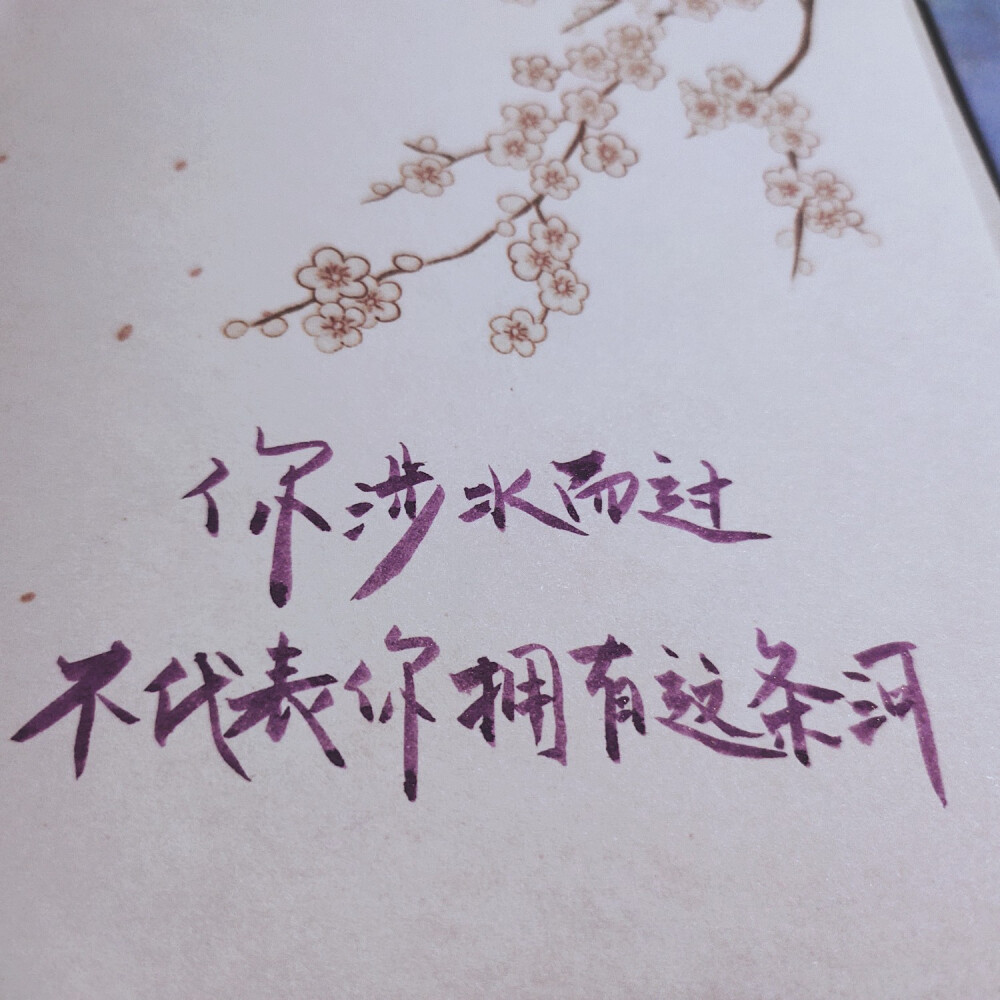 你涉水而过
不代表你拥有这条河